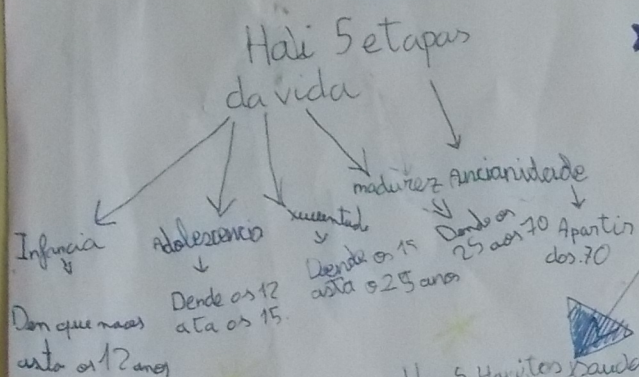 Hai 5 etapas
da vida
Infancia
Den que naces
asta os 12 anos
Adolescencia
Dende os 12
ata os 15.
xuventude
Dende os 15
asta os 25 anos
madurez
Dende os
25 aos 70
Ancianidade
A partir
dos 70